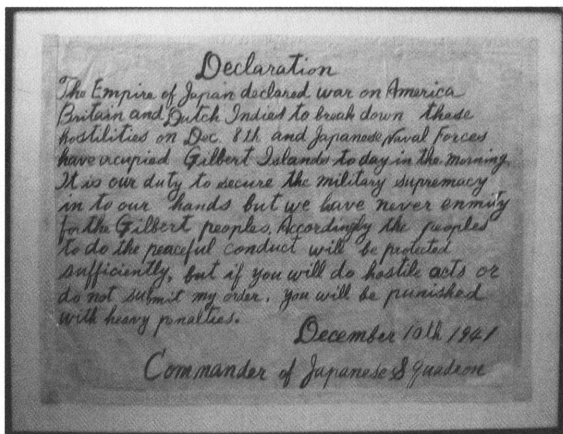 Declaration
The Empire of Japan declared war on America
Britain and Dutch Indies to break down these
hostilities on Dec. 8th and Japanese Naval Forces
have occupied Gilbert Islands to day in the morning.
It is our duty to secure the military supremacy
in to our hands but we have never enmity
for the Gilbert peoples. Accordingly the peoples
to do the peaceful conduct will be protected
sufficiently, but if you will do hostile acts or
do not submit my order, you will be punished
with heavy penalties.
December 10th 1941
Commander of Japanese Squadron